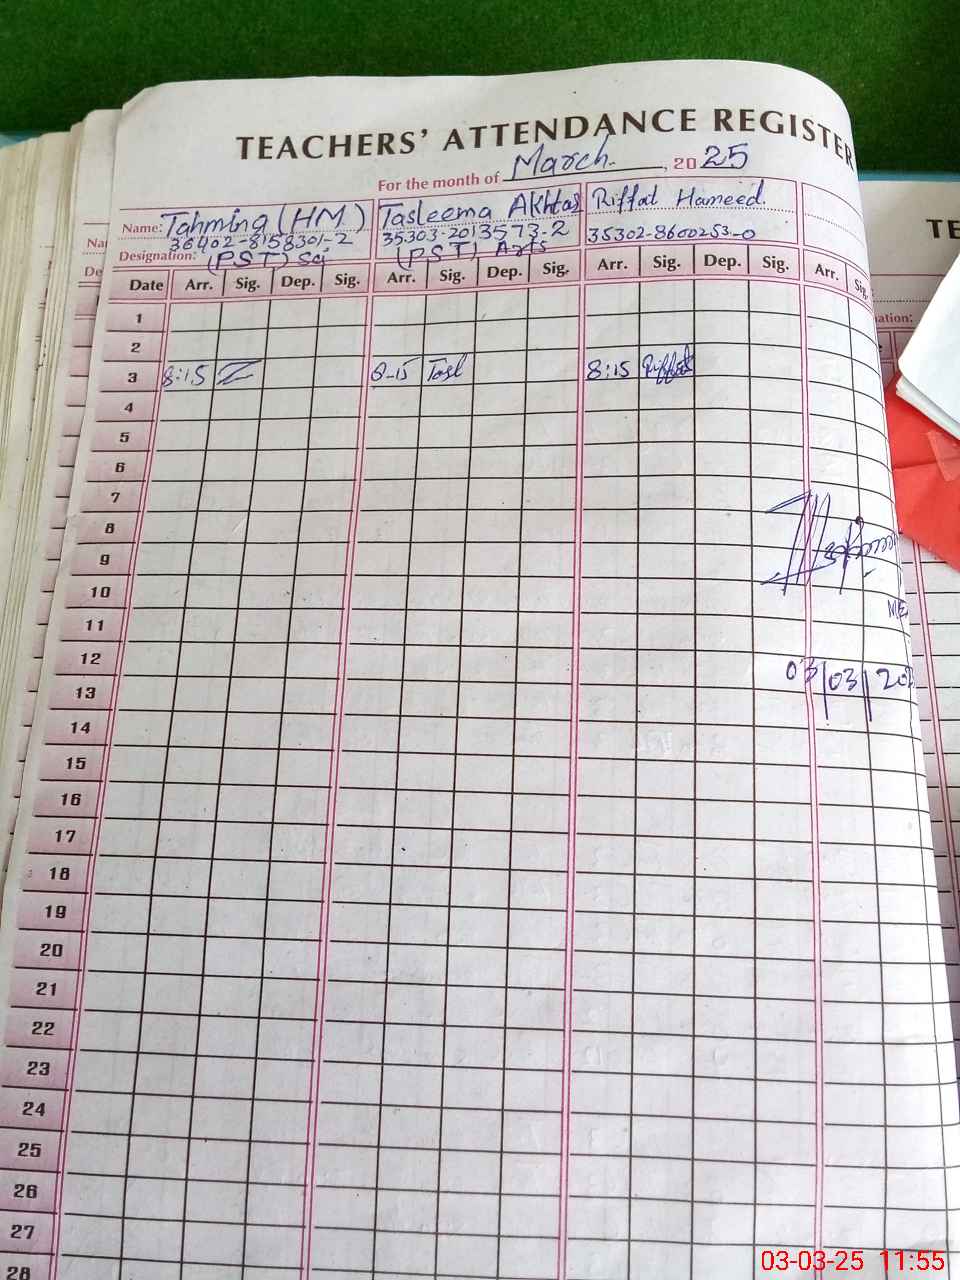 TEACHERS' ATTENDANCE REGISTER
For the month of March, 2025
Name: Tahmina (HM) Tasleema Akhtar Riffat Hameed.
36402-8158301-2 35303-2013573-2 35302-8600253-0
Designation: (PST) Sci (PST) Arts
Date Arr. Sig. Dep. Sig. Arr. Sig. Dep. Sig. Arr. Sig. Dep. Sig. Arr. Sig.
1
2
3 8:15 8-15 Tasl 8:15 Riffat
4
5
6
7
8
9
10
11
12
03/03/202
13
14
15
16
17
18
19
20
21
22
23
24
25
26
27
28
TE
Na
De
nation:
03-03-25 11:55